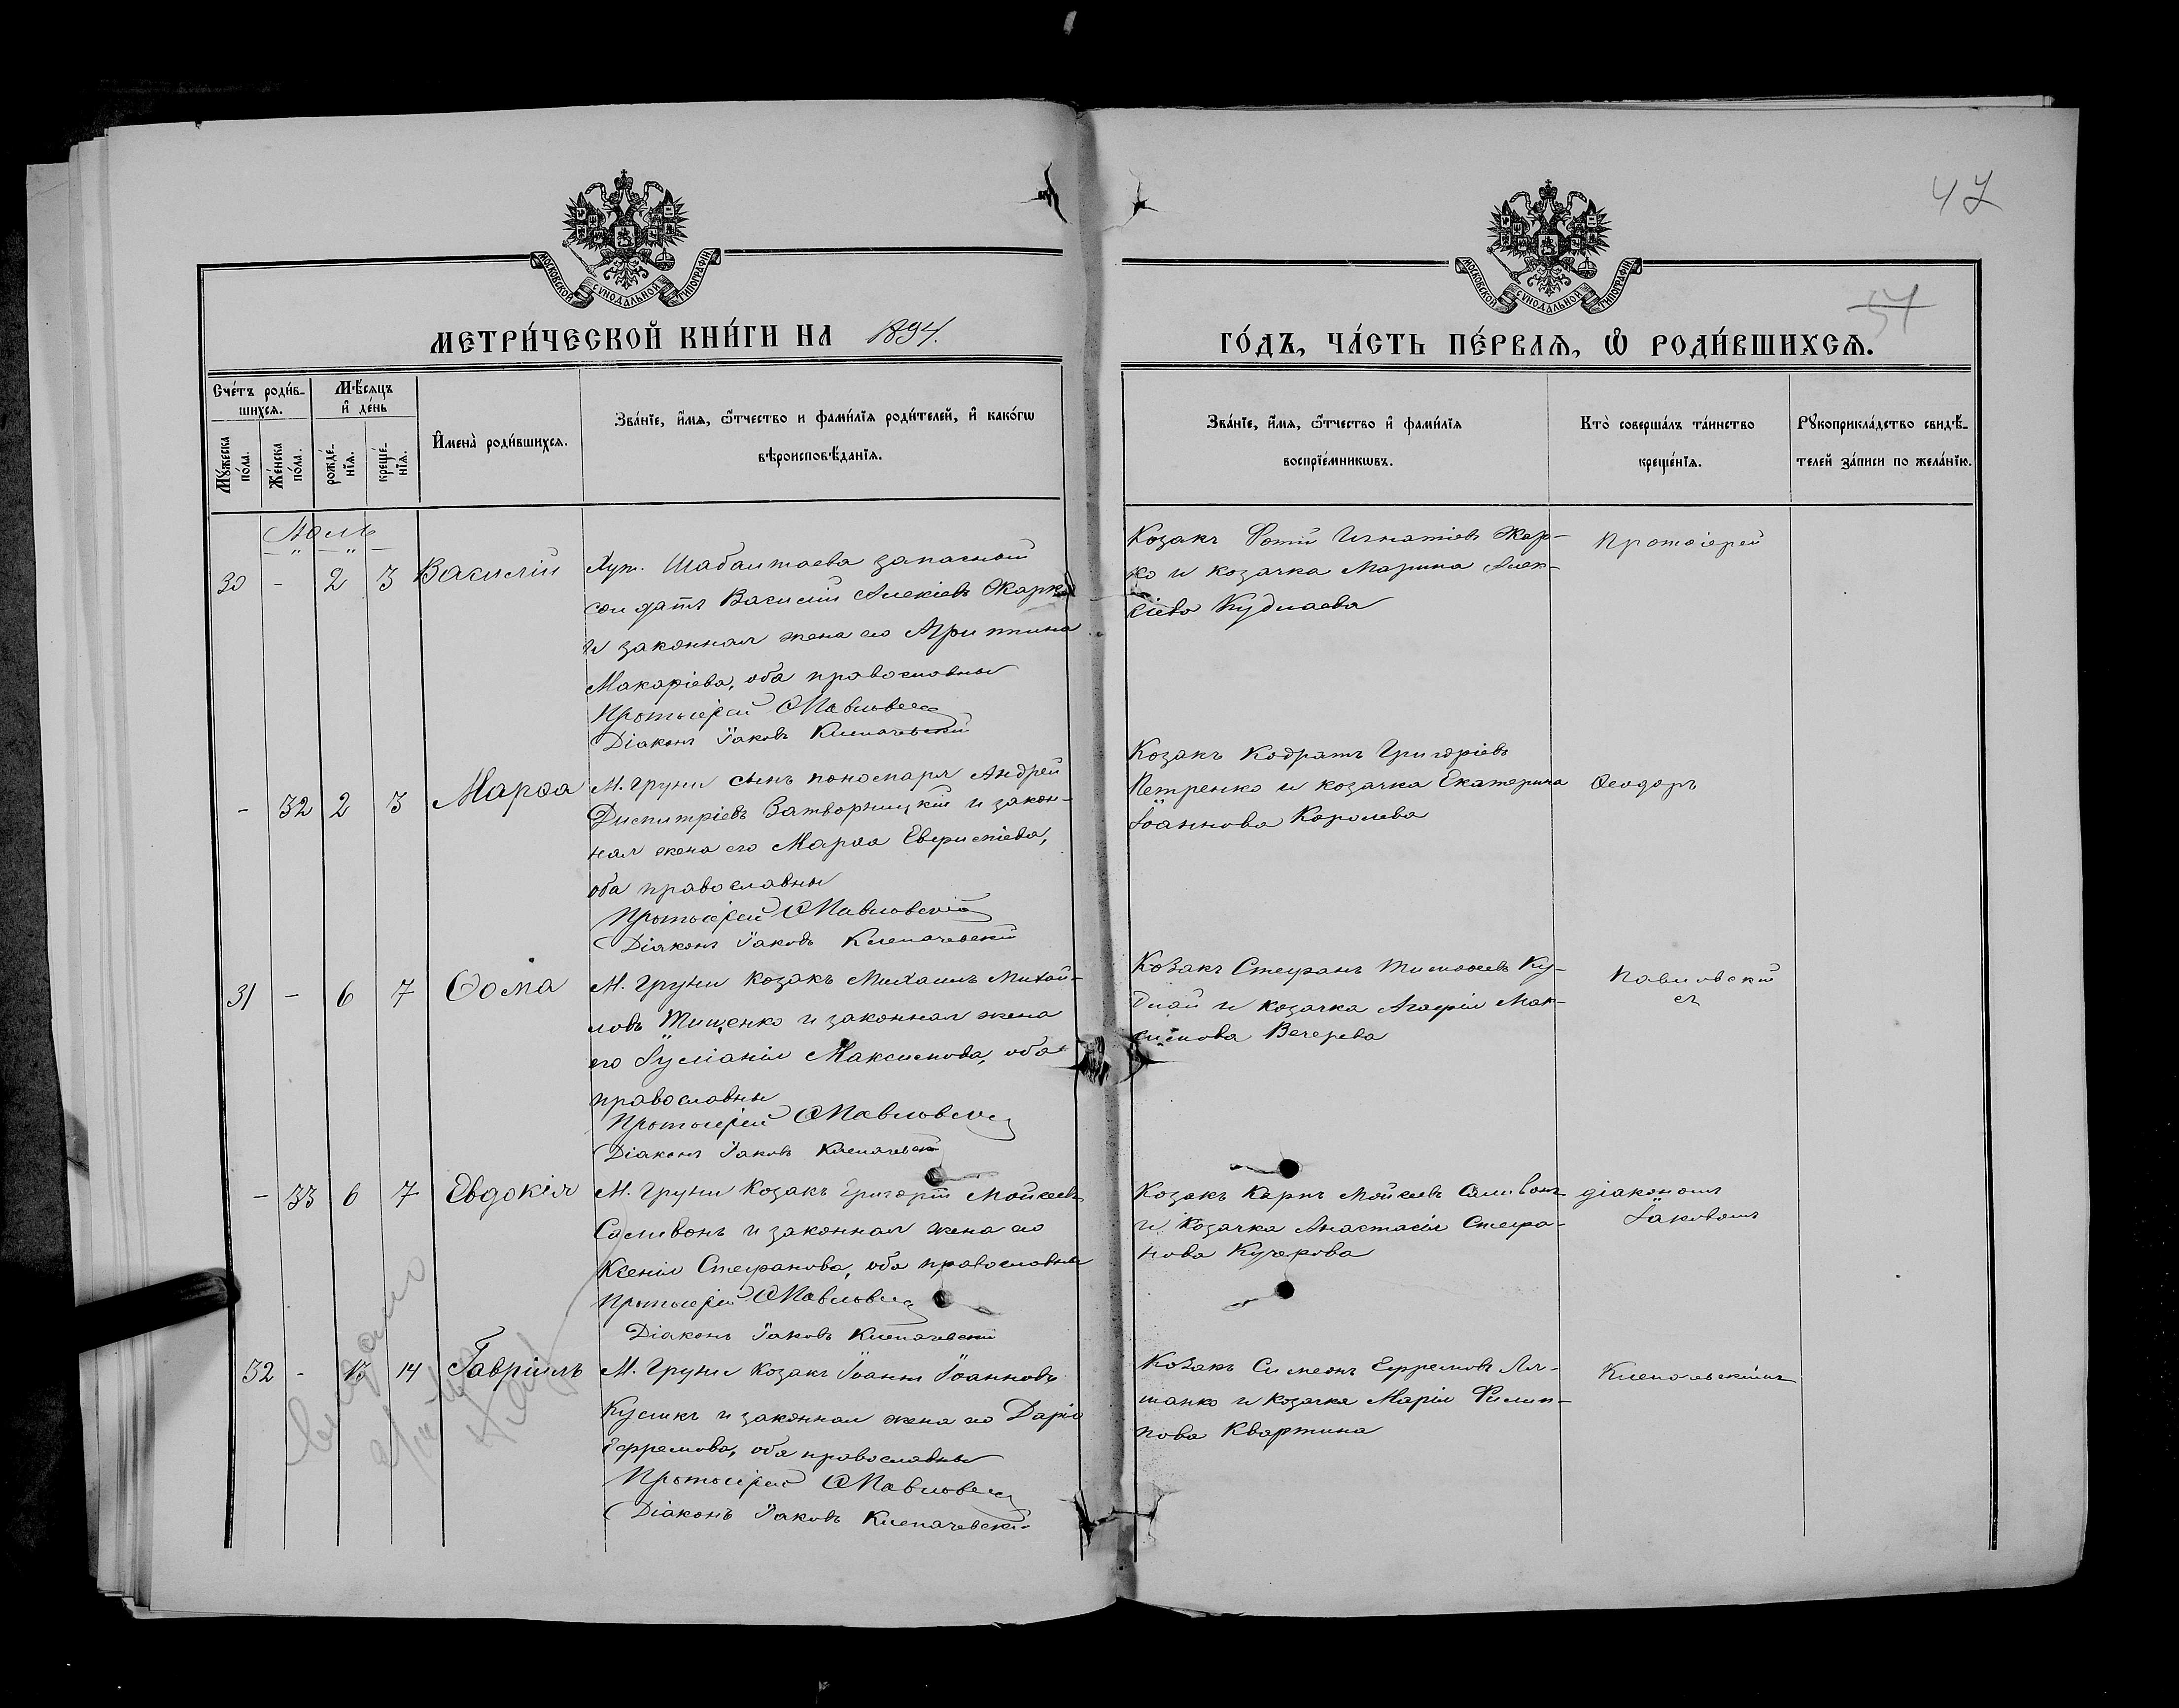 47
54
МОСКОВСКОЙ СУНОДАЛЬНОЙ ТИПОГРАФІИ
МОСКОВСКОЙ СУНОДАЛЬНОЙ ТИПОГРАФІИ
МЕТРИ́ЧЕСКОЙ КНИ́ГИ НА 1894.
ГО́ДЪ, ЧА́СТЬ ПЕ́РВАѦ, Ѡ РОДИ́ВШИХСѦ.
Сче́тъ роди́в-
шихсѧ.
Мꙋ́жеска
по́ла.
Же́нска
по́ла.
Мѣ́сяцъ
и҆ де́нь
рожде́-
нїѧ.
креще́-
нїѧ.
И҆мена̀ роди́вшихсѧ.
Зва́нїе, и҆́мѧ, ѻ҆́тчество и фами́лїѧ роди́телей, и҆ како́гѡ
вѣроисповѣ́данїѧ.
Зва́нїе, и҆́мѧ, ѻ҆́тчество и҆ фами́лїѧ
воспрїе́мникѡвъ.
Кто̀ соверша́лъ та́инство
креще́нїѧ.
Рꙋкоприкла́дство свидѣ́-
телей за́писи по жела́нїю.
Юль
30 - 2 3 Василій
Хут. Шабалтаева запасной
солдатъ Василій Алексіевъ Жарко
и законная жена его Агриппина
Макаріева, оба православны
Протоіерей Ѳ Павловскій
Діаконъ Іаковъ Клепачевскій
Козакъ Фотій Игнатіевъ Жар-
ко и козачка Марина Алек-
сіева Кудлаева
Протоіерей
- 32 2 3 Марѳа
М. Груни сынъ пономаря Андрей
Димитріевъ Затворницкій и закон-
ная жена его Марѳа Евфимієва,
оба православны
Протоіерей Ѳ Павловскій
Діаконъ Іаковъ Клепачевскій
Козакъ Кодратъ Григоріевъ
Петренко и козачка Екатерина
Іоаннова Королева
Ѳеодоръ
31 - 6 7 Ѳома
М. Груни козакъ Михаилъ Михай-
ловъ Тищенко и законная жена
его Іуліанія Максимова, оба
православны
Протоіерей Ѳ Павловскій
Діаконъ Іаковъ Клепачевскій
Козакъ Стефанъ Тимоѳеевъ Ку-
длай и козачка Агафія Мак-
симова Вечерева
Павловскій
съ
- 33 6 7 Евдокія
М. Груни козакъ Григорій Мойсеевъ
Саливонъ и законная жена его
Ксенія Стефанова, оба православны
Протоіерей Ѳ Павловскій
Діаконъ Іаковъ Клепачевскій
Козакъ Карпъ Мойсеевъ Саливонъ
и козачка Анастасія Стефа-
нова Кучерова
діакономъ
Іаковомъ
32 - 13 14 Гавріилъ
М. Груни козакъ Іоаннъ Іоанновъ
Куликъ и законная жена его Дарія
Ефремова, оба православны
Протоіерей Ѳ Павловскій
Діаконъ Іаковъ Клепачевскій
Козакъ Симеонъ Ефремовъ Ля-
шанко и козачка Марія Филип-
пова Квартина
Клепачевскимъ
Выдано